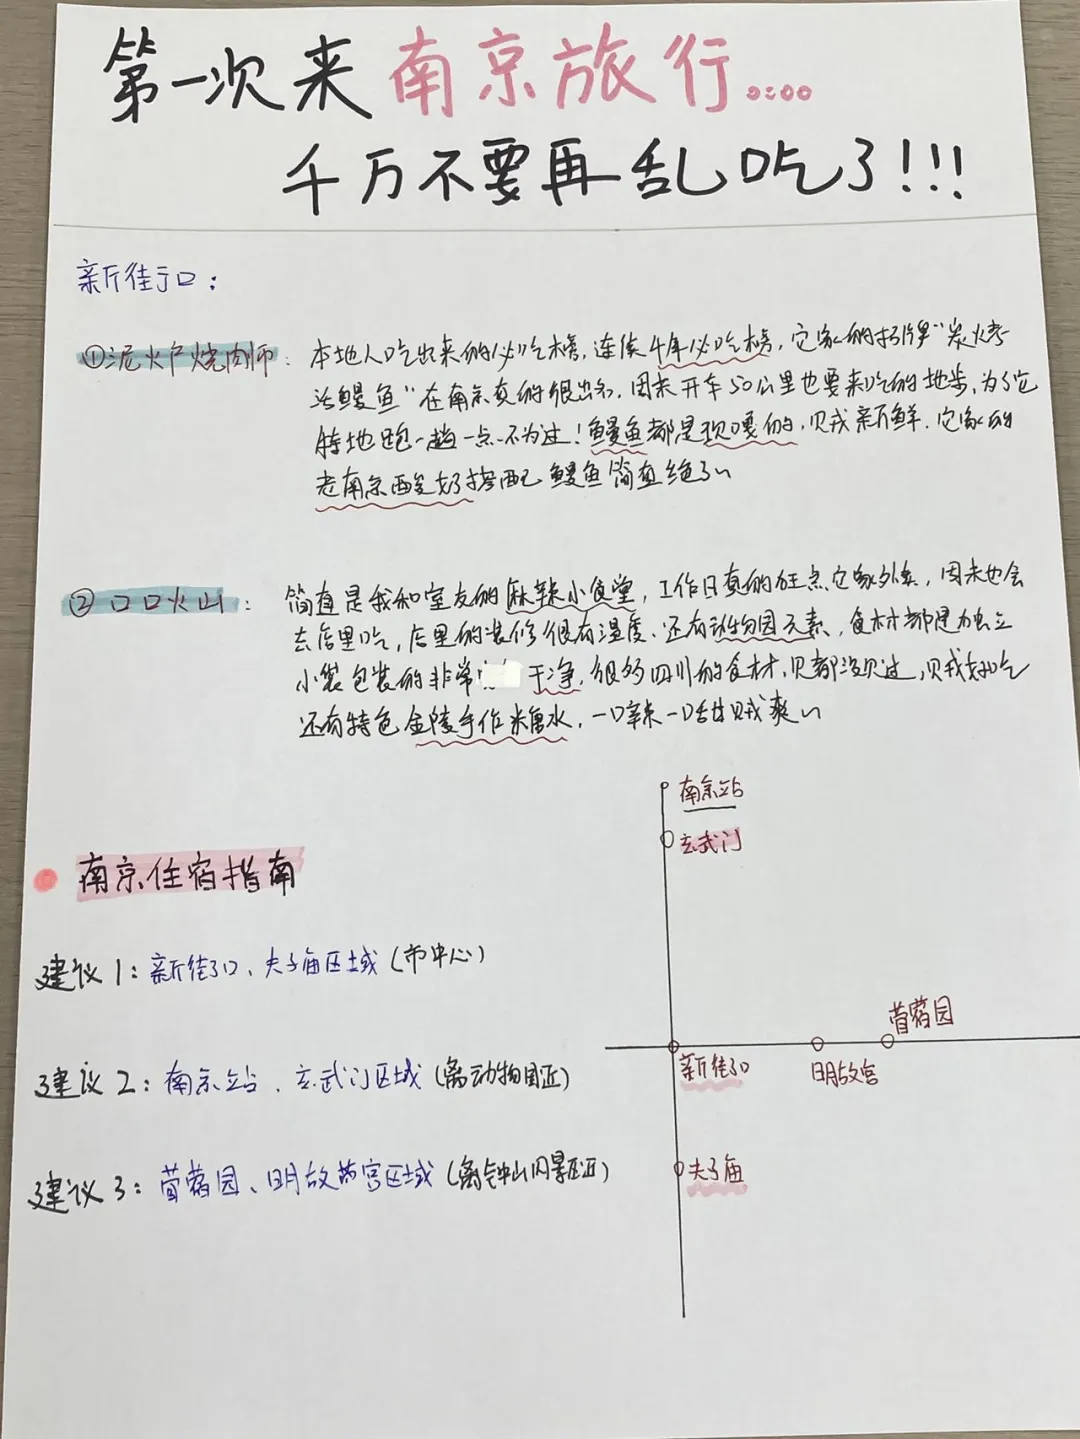 第一次来南京旅行。。。。
千万不要再乱吃了!!!
新街口:
①泥炉烧肉师: 本地人吃出来的必吃榜,连续4年必吃榜,它家的招牌"炭烤
活鳗鱼"在南京真的很出名,周末开车50公里也要来吃的地步,为了它
特地跑一趟一点不为过!鳗鱼都是现嘎的,贝戎新鲜,它家的
老南京酸奶搭配鳗鱼简直绝了~
②口口火山: 简直是我和室友的麻辣小食堂,工作日真的狂点它家外卖,周末也会
去店里吃,店里的装修很有温度、还有动物园元素,食材都是独立
小袋包装的非常 干净,很多四川的食材,见都没见过,贝戎好吃
还有特色金陵手作糖水,一口辣一口甜贼爽~
南京站
玄武门
南京住宿指南
建议1:新街口、夫子庙区域(市中心)
苜蓿园
新街口 明故宫
建议2:南京站、玄武门区域(离动物园近)
夫子庙
建议3:苜蓿园、明故宫区域(离钟山风景区近)